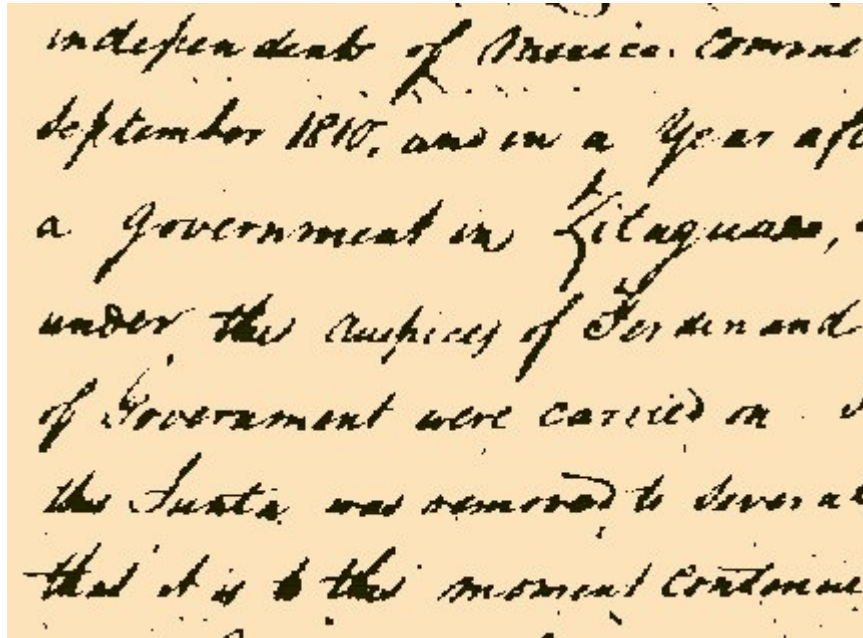 independent of Mexico. comme
September 1810, and in a Year aft
a government in Zitaguaro,
under the auspices of Ferdinand
of Government were carried on
the Junta was removed to several
that it is to this moment continue